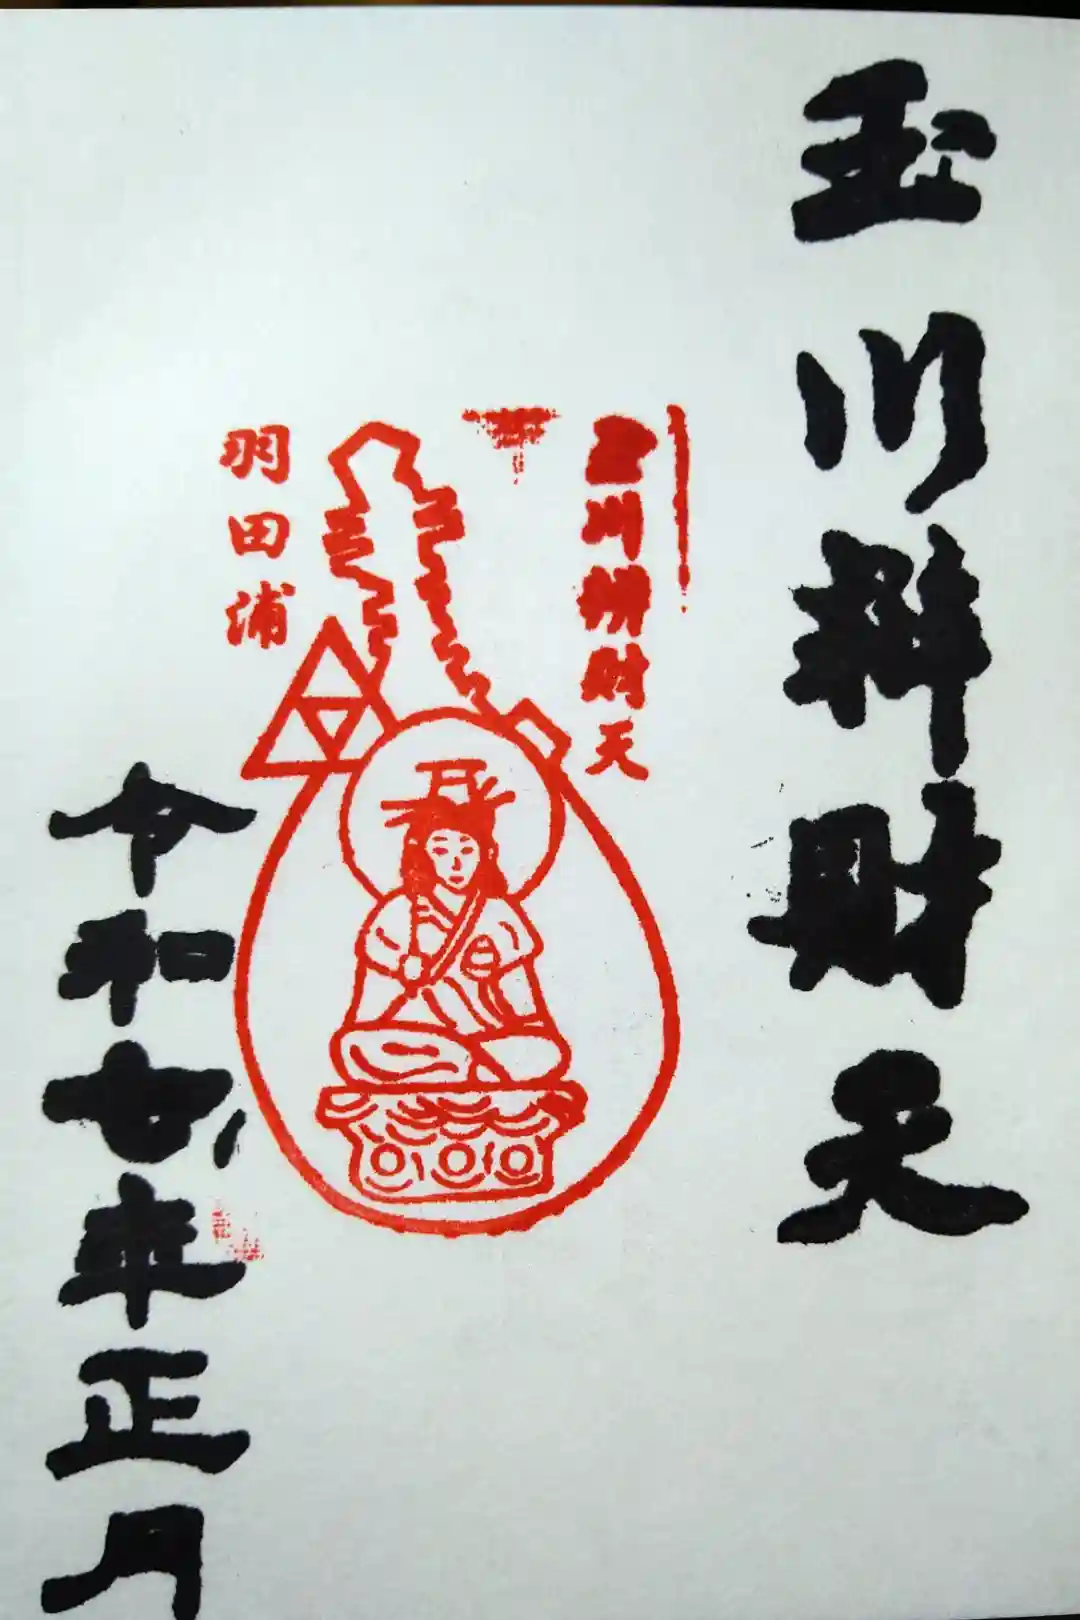 玉川辨財天
玉川辨財天
羽田浦
令和六年正月